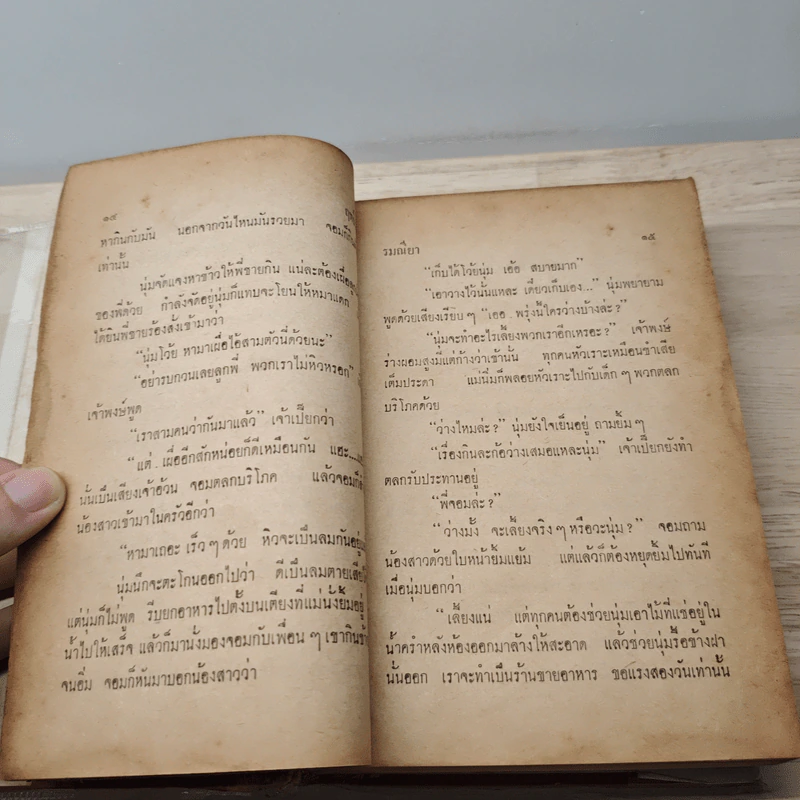 ๑๔
หากินกับมัน นอกจากวันไหนมันรวยมา จอมก็กิน
เท่านั้น
นุ่มจัดแจงหาข้าวให้พี่ชายกิน แน่ละต้องเผื่อ
ของพี่ด้วย กำลังจัดอยู่นุ่มก็แทบจะโยนให้หมาแดก
ได้ยินพี่ชายร้องสั่งเข้ามาว่า
“นุ่มโว้ย หามาเผื่อไอ้สามตัวนี่ด้วยนะ”
“อย่ารบกวนเลยลูกพี่ พวกเราไม่หิวหรอก”
เจ้าพงษ์พูด
“เราสามคนว่ากันมาแล้ว” เจ้าเปี๊ยกว่า
“แต่ . เผื่ออีกสักหน่อยก็ดีเหมือนกัน แฮะ....
นั่นเป็นเสียงเจ้าอ้วน จอมตลกบริโภค แล้วจอมก็สั่ง
น้องสาวเข้ามาในครัวอีกว่า
“หามาเถอะ เร็ว ๆ ด้วย หิวจะเป็นลมกันอยู่
นุ่มนึกจะตะโกนออกไปว่า ดีเป็นลมตายเสีย
แต่นุ่มก็ไม่พูด รีบยกอาหารไปตั้งบนเตียงที่แม่นั่งยิ้มอยู่
น้ำไปให้เสร็จ แล้วก็มานั่งมองจอมกับเพื่อน ๆ เขากินข้าว
จนอิ่ม จอมก็หันมาบอกน้องสาวว่า
รมณียา ๑๕
“เก็บได้โว้ยนุ่ม เอ้อ สบายมาก”
“เอาวางไว้นั่นแหละ เดี๋ยวเก็บเอง...” นุ่มพยายาม
พูดด้วยเสียงเรียบ ๆ “เออ . พรุ่งนี้ใครว่างบ้างล่ะ?”
“นุ่มจะทำอะไรเลี้ยงพวกเราอีกเหรอะ?” เจ้าพงษ์
ร่างผอมสูงมีแต่ก้างว่าเข้านั่น ทุกคนหัวเราะเหมือนขำเสีย
เต็มประดา แม่นิ่มก็พลอยหัวเราะไปกับเด็ก ๆ พวกตลก
บริโภคด้วย
“ว่างไหมล่ะ?” นุ่มยังใจเย็นอยู่ ถามยิ้ม ๆ
“เรื่องกินละก้อว่างเสมอแหละนุ่ม” เจ้าเปี๊ยกยังทำ
ตลกรับประทานอยู่
“พี่จอมล่ะ?”
“ว่างมั้ง จะเลี้ยงจริง ๆ หรือวะนุ่ม?” จอมถาม
น้องสาวด้วยใบหน้ายิ้มแย้ม แต่แล้วก็ต้องหยุดยิ้มไปทันที
เมื่อนุ่มบอกว่า
“เลี้ยงแน่ แต่ทุกคนต้องช่วยนุ่มเอาไม้ที่แช่อยู่ใน
น้ำครำหลังห้องออกมาล้างให้สะอาด แล้วช่วยนุ่มรื้อข้างฝา
นั่นออก เราจะทำเป็นร้านขายอาหาร ขอแรงสองวันเท่านั้น